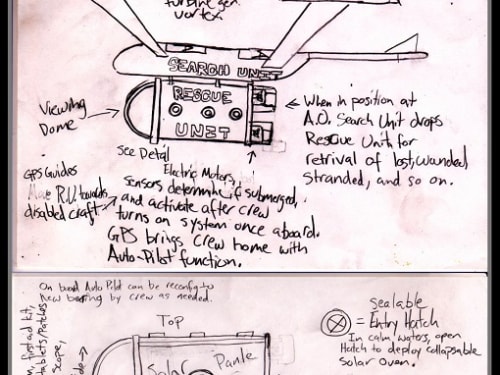 turbine gen.
vortex
SEARCH UNIT
RESCUE
UNIT
Viewing
Dome
When in position at
A.O. Search Unit drops
Rescue Unit for
retrival of lost, wounded
Stranded, and so on.
see Detail
Electric Motors,
GPS Guides
R.U. towards
disabled craft
sensors determine if submerged,
and activate after crew
turns on system once aboard.
GPS brings crew home with
Auto-Pilot function.
On board Auto Pilot can be reconfig to
new bearing by crew as needed.
first aid kit,
tablets/Patches
scope,
Top
Solar Panle
Sealable
= Entry Hatch
In calm waters, open
Hatch to deploy collapsable
solar oven.